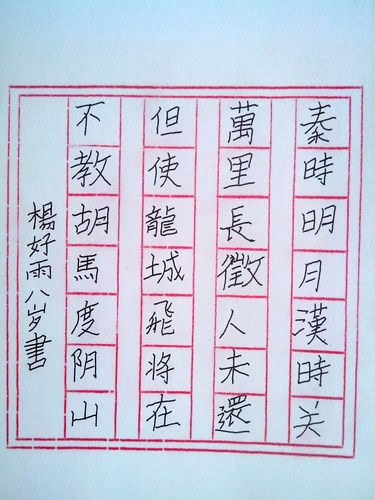 秦時明月漢時关
萬里長徵人未還
但使龍城飛将在
不教胡馬度阴山
楊好雨八岁書